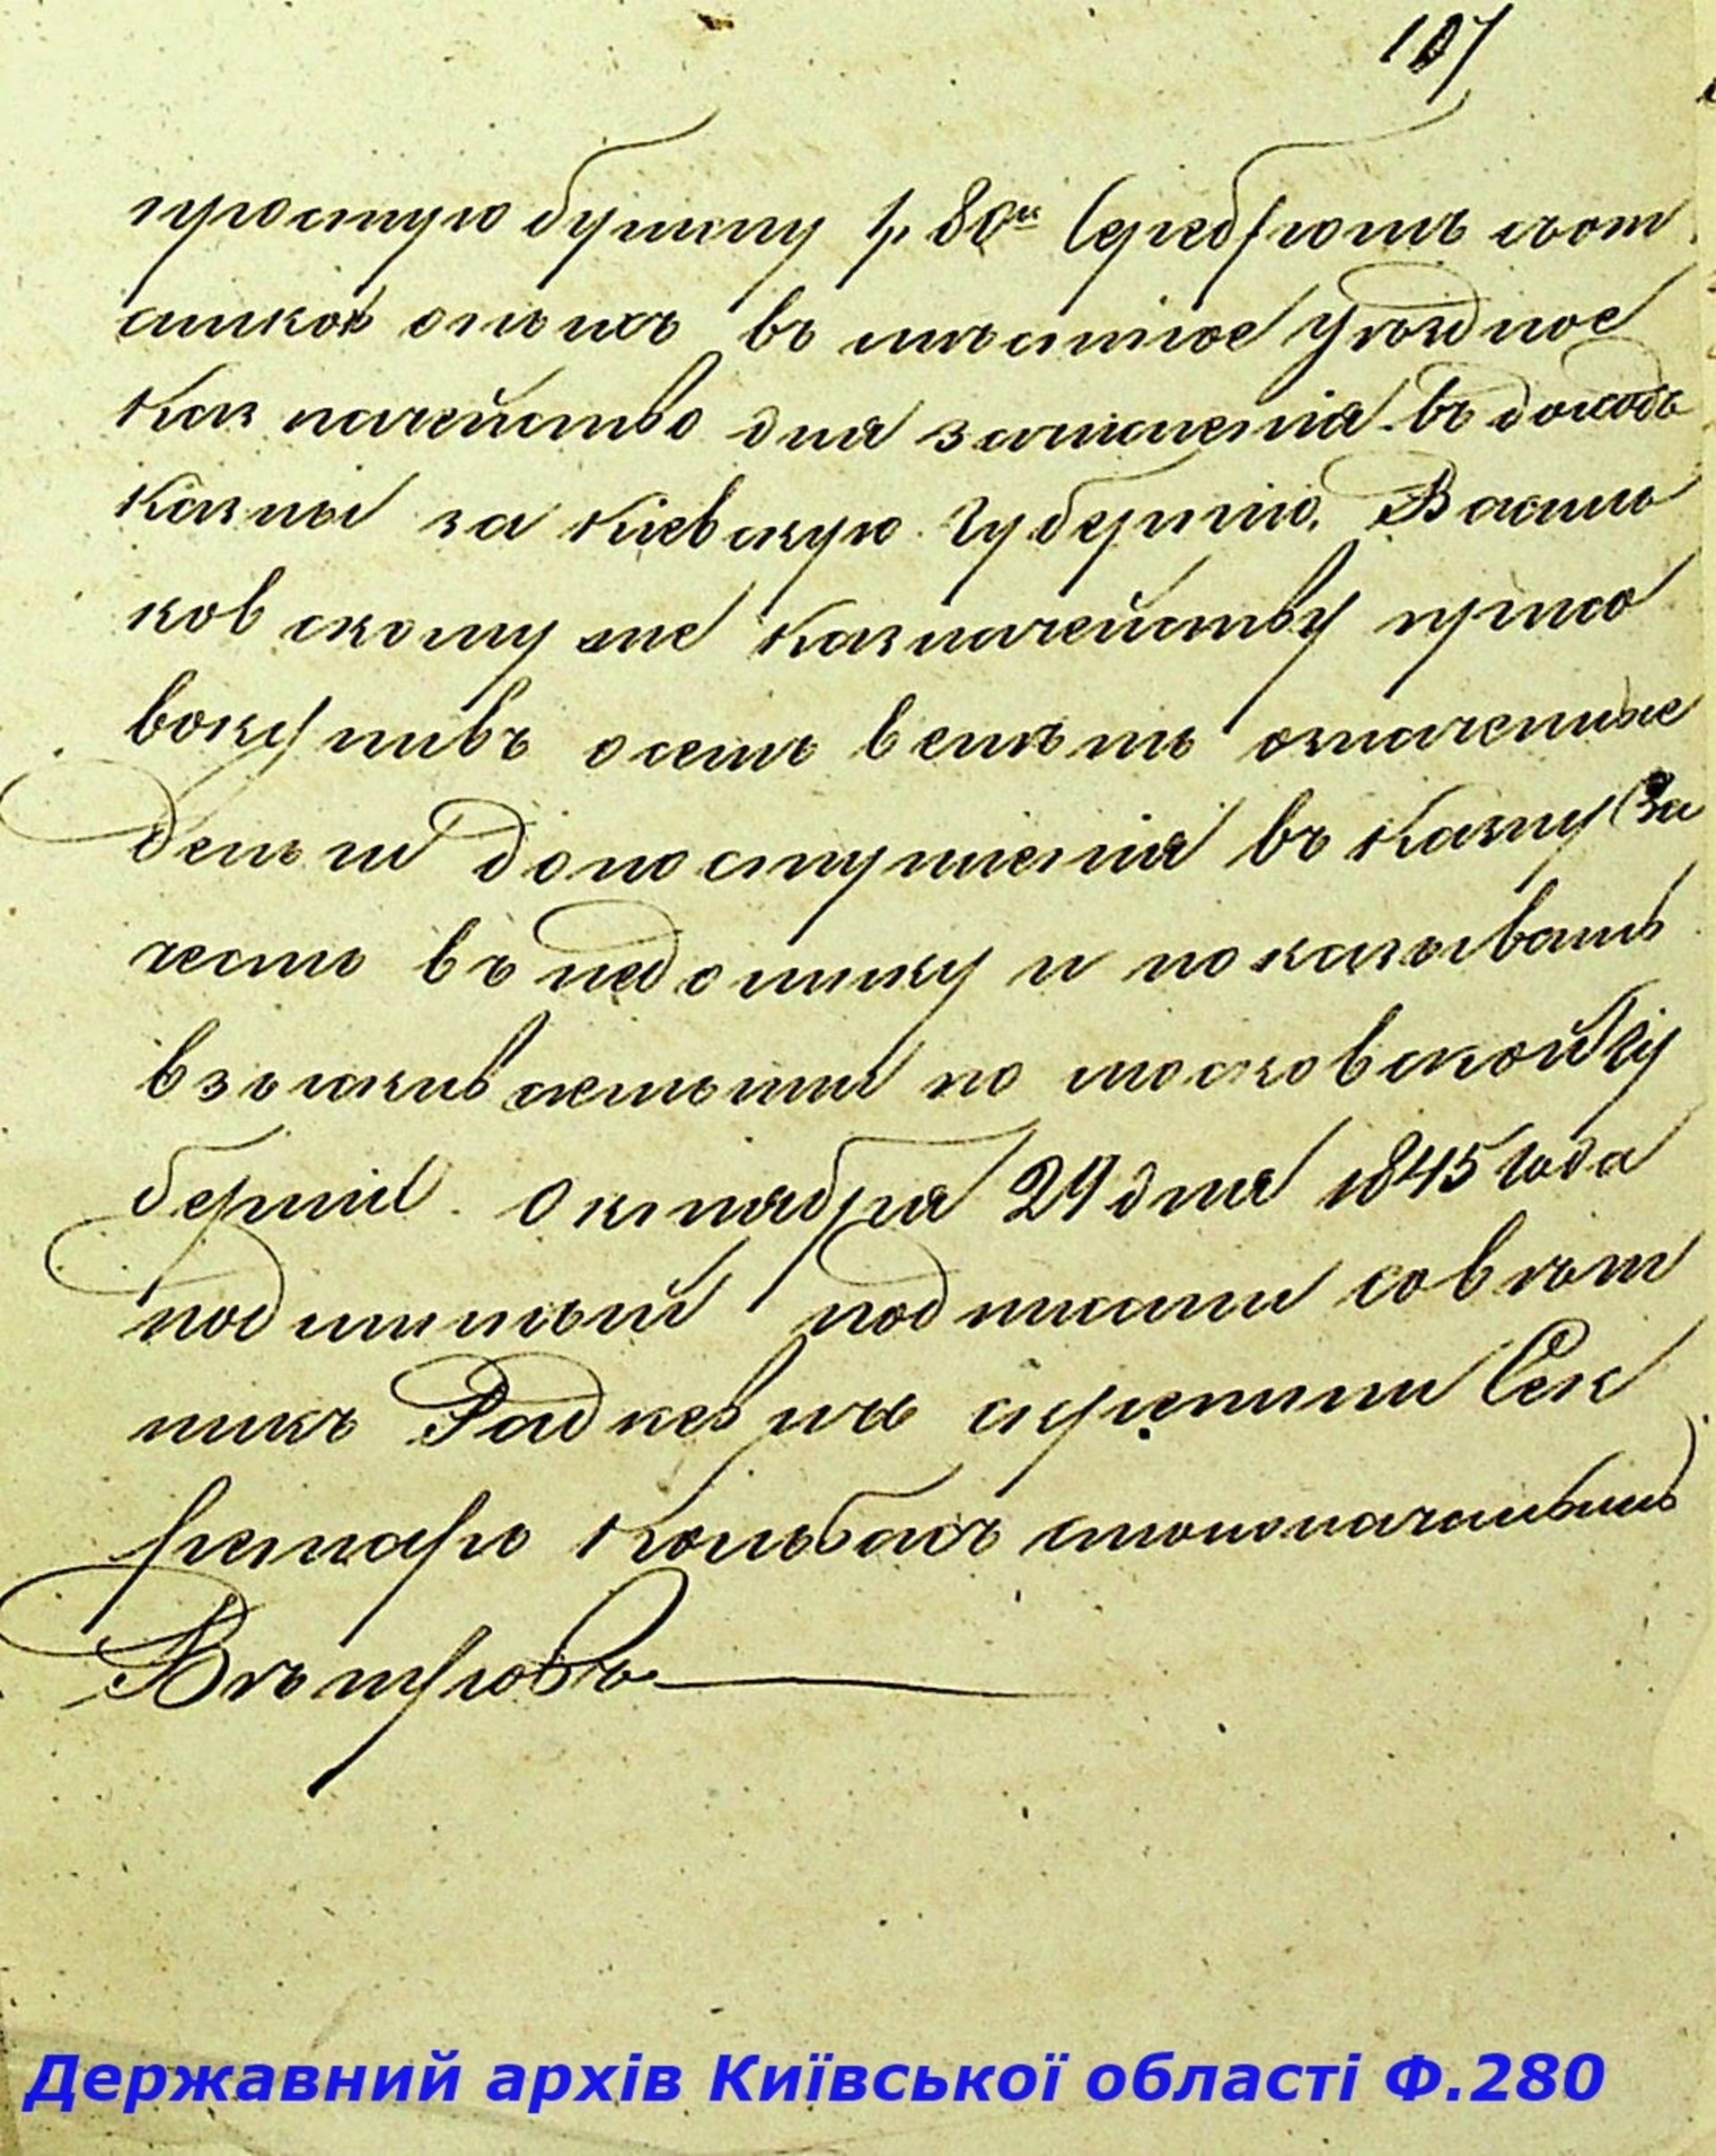 107
простую бумагу 1 р. 80 к. Серебромъ съот
сылкою оныхъ въ мѣстное Уѣздное
Казначейство для зачисления въ доходъ
казны за Кіевскую Губернію, Василь
ковскому же Казначейству присо
вокупивъ о семъ велѣть означенные
деньги до поступленія въ Казну за
честь въ недоимку и показывать
взысκиваемыми по московской Гу
берніи. Октября 29 дня 1845 года
подлинный подписали совѣт
никъ Радкевичъ скрепили Сек
ретарь Кольбахъ столоначальникъ
Вѣтровъ
Державний архів Київської області Ф.280